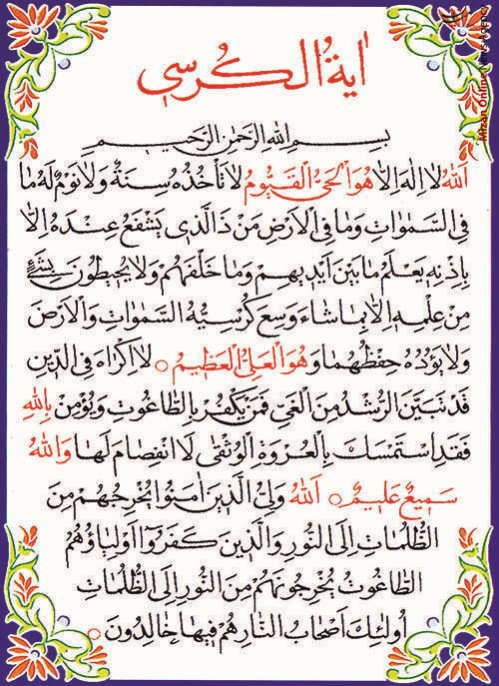 اٰيةُ الكُرسيٖ
بِسمِ اللهِ الرَّحمٰنِ الرَّحيٖمِ
اَللهُ لا اِلٰهَ اِلّا هُوَ الحَيُّ القَيّومُ لا تَأخُذُهُ سِنَةٌ وَلا نَومٌ لَهُ ما
فِي السَّمٰواتِ وَما فِي الاَرضِ مَن ذَا الَّذيٖ يَشفَعُ عِندَهُ اِلّا
بِاِذنِهٖ يَعلَمُ ما بَينَ اَيديٖهِم وَما خَلفَهُم وَلا يُحيٖطونَ بِشَيءٍ
مِن عِلمِهٖ اِلّا بِما شاءَ وَسِعَ كُرسِيُّهُ السَّمٰواتِ وَالاَرضَ
وَلا يَؤُدُهُ حِفظُهُما وَ هُوَ العَلِيُّ العَظيٖمُ ○ لا اِكراهَ فِي الدّيٖنِ
قَد تَبَيَّنَ الرُّشدُ مِنَ الغَيِّ فَمَن يَكفُر بِالطّاغوتِ وَيُؤمِن بِاللهِ
فَقَدِ استَمسَكَ بِالعُروَةِ الوُثقىٰ لَا انفِصامَ لَها وَاللهُ
سَميٖعٌ عَليٖمٌ ○ اَللهُ وَلِيُّ الَّذيٖنَ اٰمَنوا يُخرِجُهُم مِنَ
الظُّلُماتِ اِلَى النّورِ وَالَّذيٖنَ كَفَروا اَولِياؤُهُمُ
الطّاغوتُ يُخرِجونَهُم مِنَ النّورِ اِلَى الظُّلُماتِ
اُولٰئِكَ اَصحابُ النّارِ هُم فيٖها خالِدونَ ○
Mizan Online